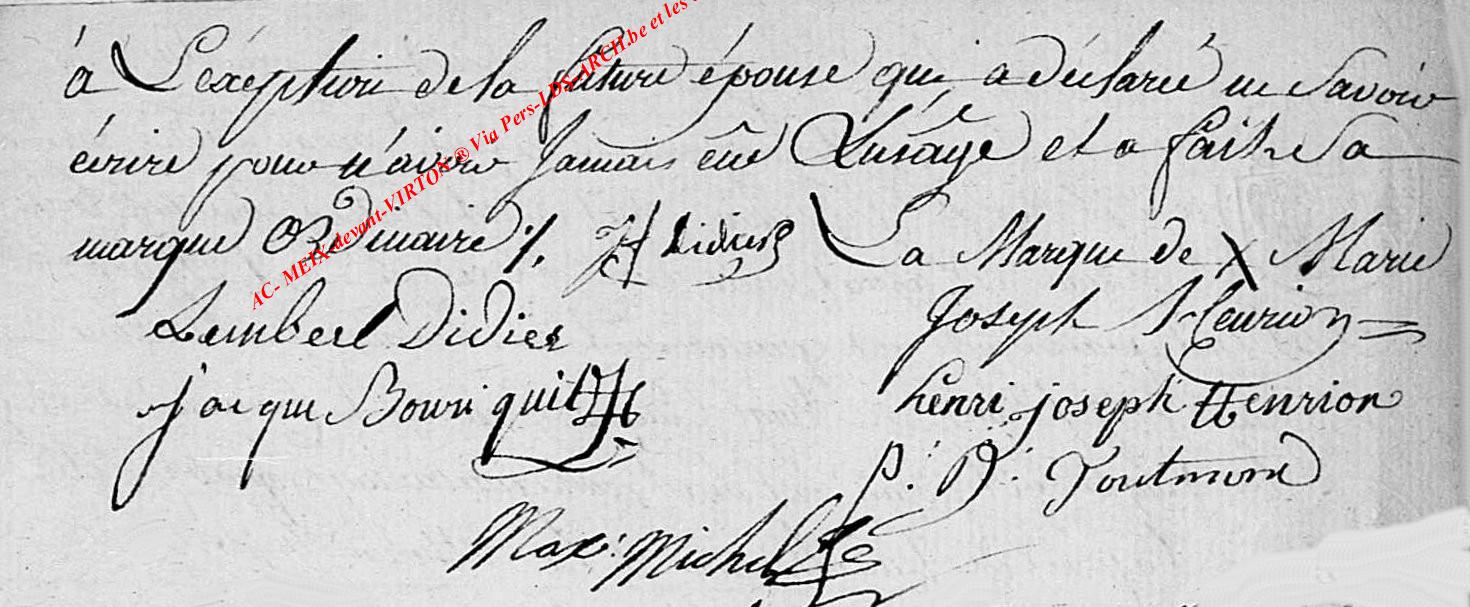 à L'éxéption de la future épouse qui a déclaré ne savoir
écrire pour n'avoir Jamais eûe L'usâge et a fait sa
marque ORDinaire ./. JH Didier La Marque de X Marie
Lambert Didier Joseph Henrion
jacque Bouriquit henri joseph Henrion
P. D. Toutmond
Max: Michel
AC- MEIX-devant-VIRTON ® Via Pers-LDS-ARCH.be et les